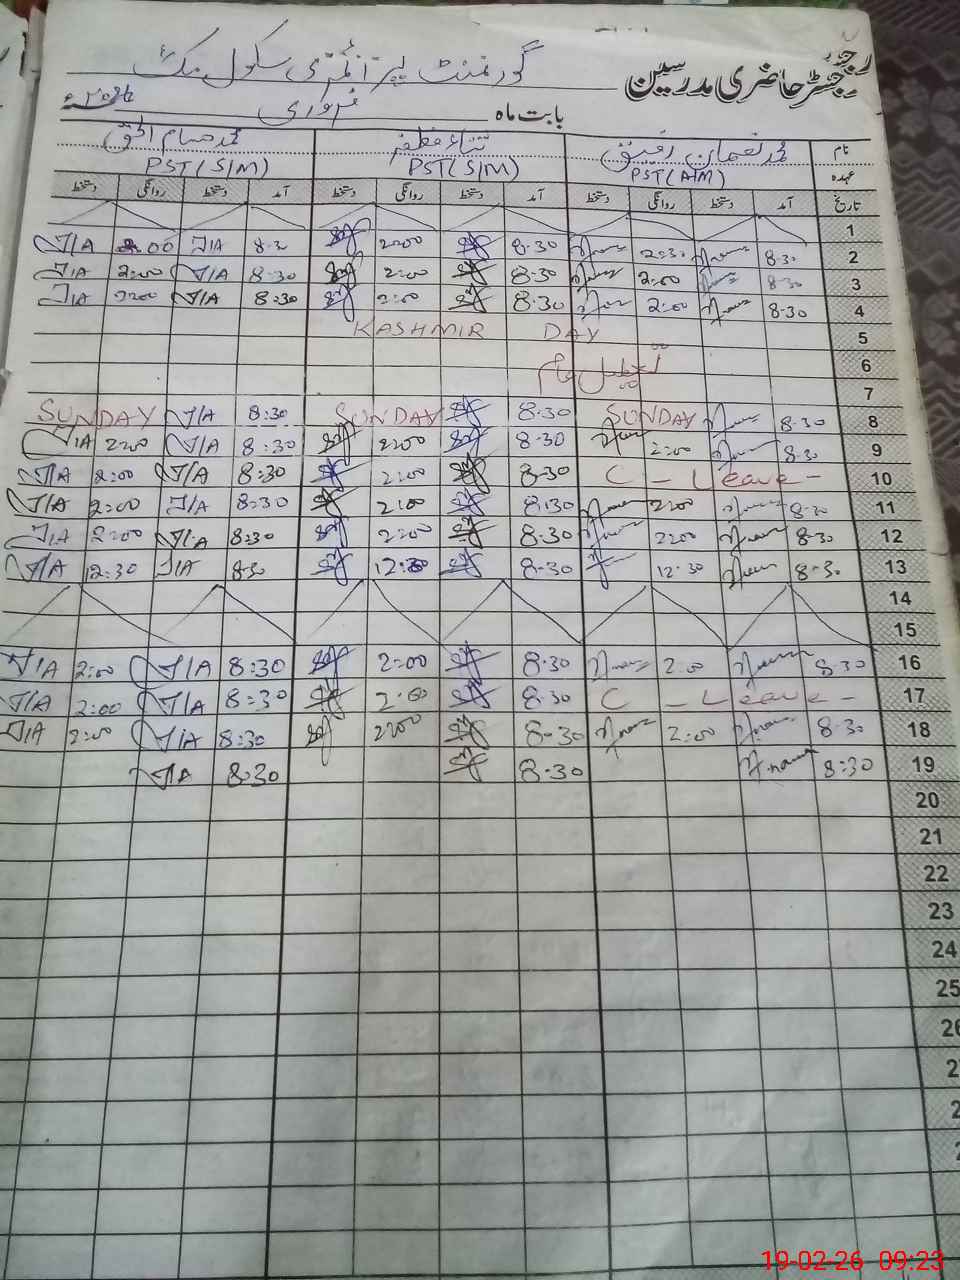 رجسٹر حاضری مدرسین گورنمنٹ پرائمری سکول
بابت ماہ فروری ۲۰۲۶ء
نام محمد نعمان رفیق ثناء مظفر محمد حسام الحق
عہدہ PST(AIM) PST(S/M) PST(S/M)
تاریخ آمد دستخط روانگی دستخط آمد دستخط روانگی دستخط آمد دستخط روانگی دستخط
1
2 8.30 2:30 8.30 2:00 8.30 JIA 2:00 JIA
3 8.30 2:00 8.30 2:00 8:30 JIA 2:00 JIA
4 8.30 2:00 8.30 2:00 8:30 JIA 2:00 JIA
5 KASHMIR DAY
6 تعطیل عام
7
8 8.30 SUNDAY 8.30 SUNDAY 8:30 JIA SUNDAY
9 8.30 2:00 8.30 2:00 8:30 JIA 2:00 JIA
10 C - Leave - 8.30 2:00 8:30 JIA 2:00 JIA
11 8.30 2:00 8:30 2:00 8:30 JIA 2:00 JIA
12 8.30 2:00 8.30 2:00 8:30 JIA 2:00 JIA
13 8.30 12.30 8.30 12:30 8.30 JIA 12:30 JIA
14
15
16 8.30 2:00 8.30 2:00 8:30 JIA 2:00 JIA
17 C - Leave - 8.30 2:00 8:30 JIA 2:00 JIA
18 8.30 2:00 8.30 2:00 8:30 JIA 2:00 JIA
19 8:30 8:30 8.30 JIA
20
21
22
23
24
25
19-02-26 09:23